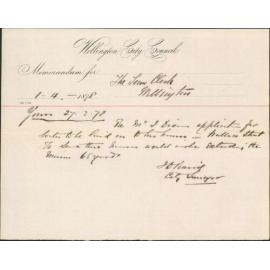 Wellington City Council
Memorandum for
The Town Clerk
Wellington
1 - 4 - 1878
Yours 27.3.78 The Mr J application for
water to be laid on to his house in Wallace Street
To this house would extending the
mains 65 yards
City Surveyor